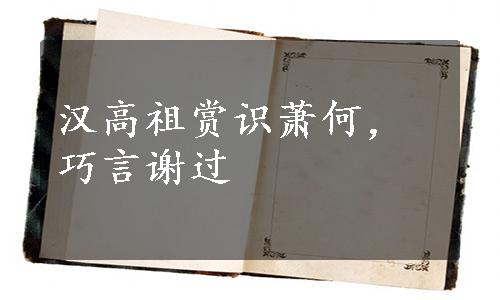 汉高祖赏识萧何，
巧言谢过